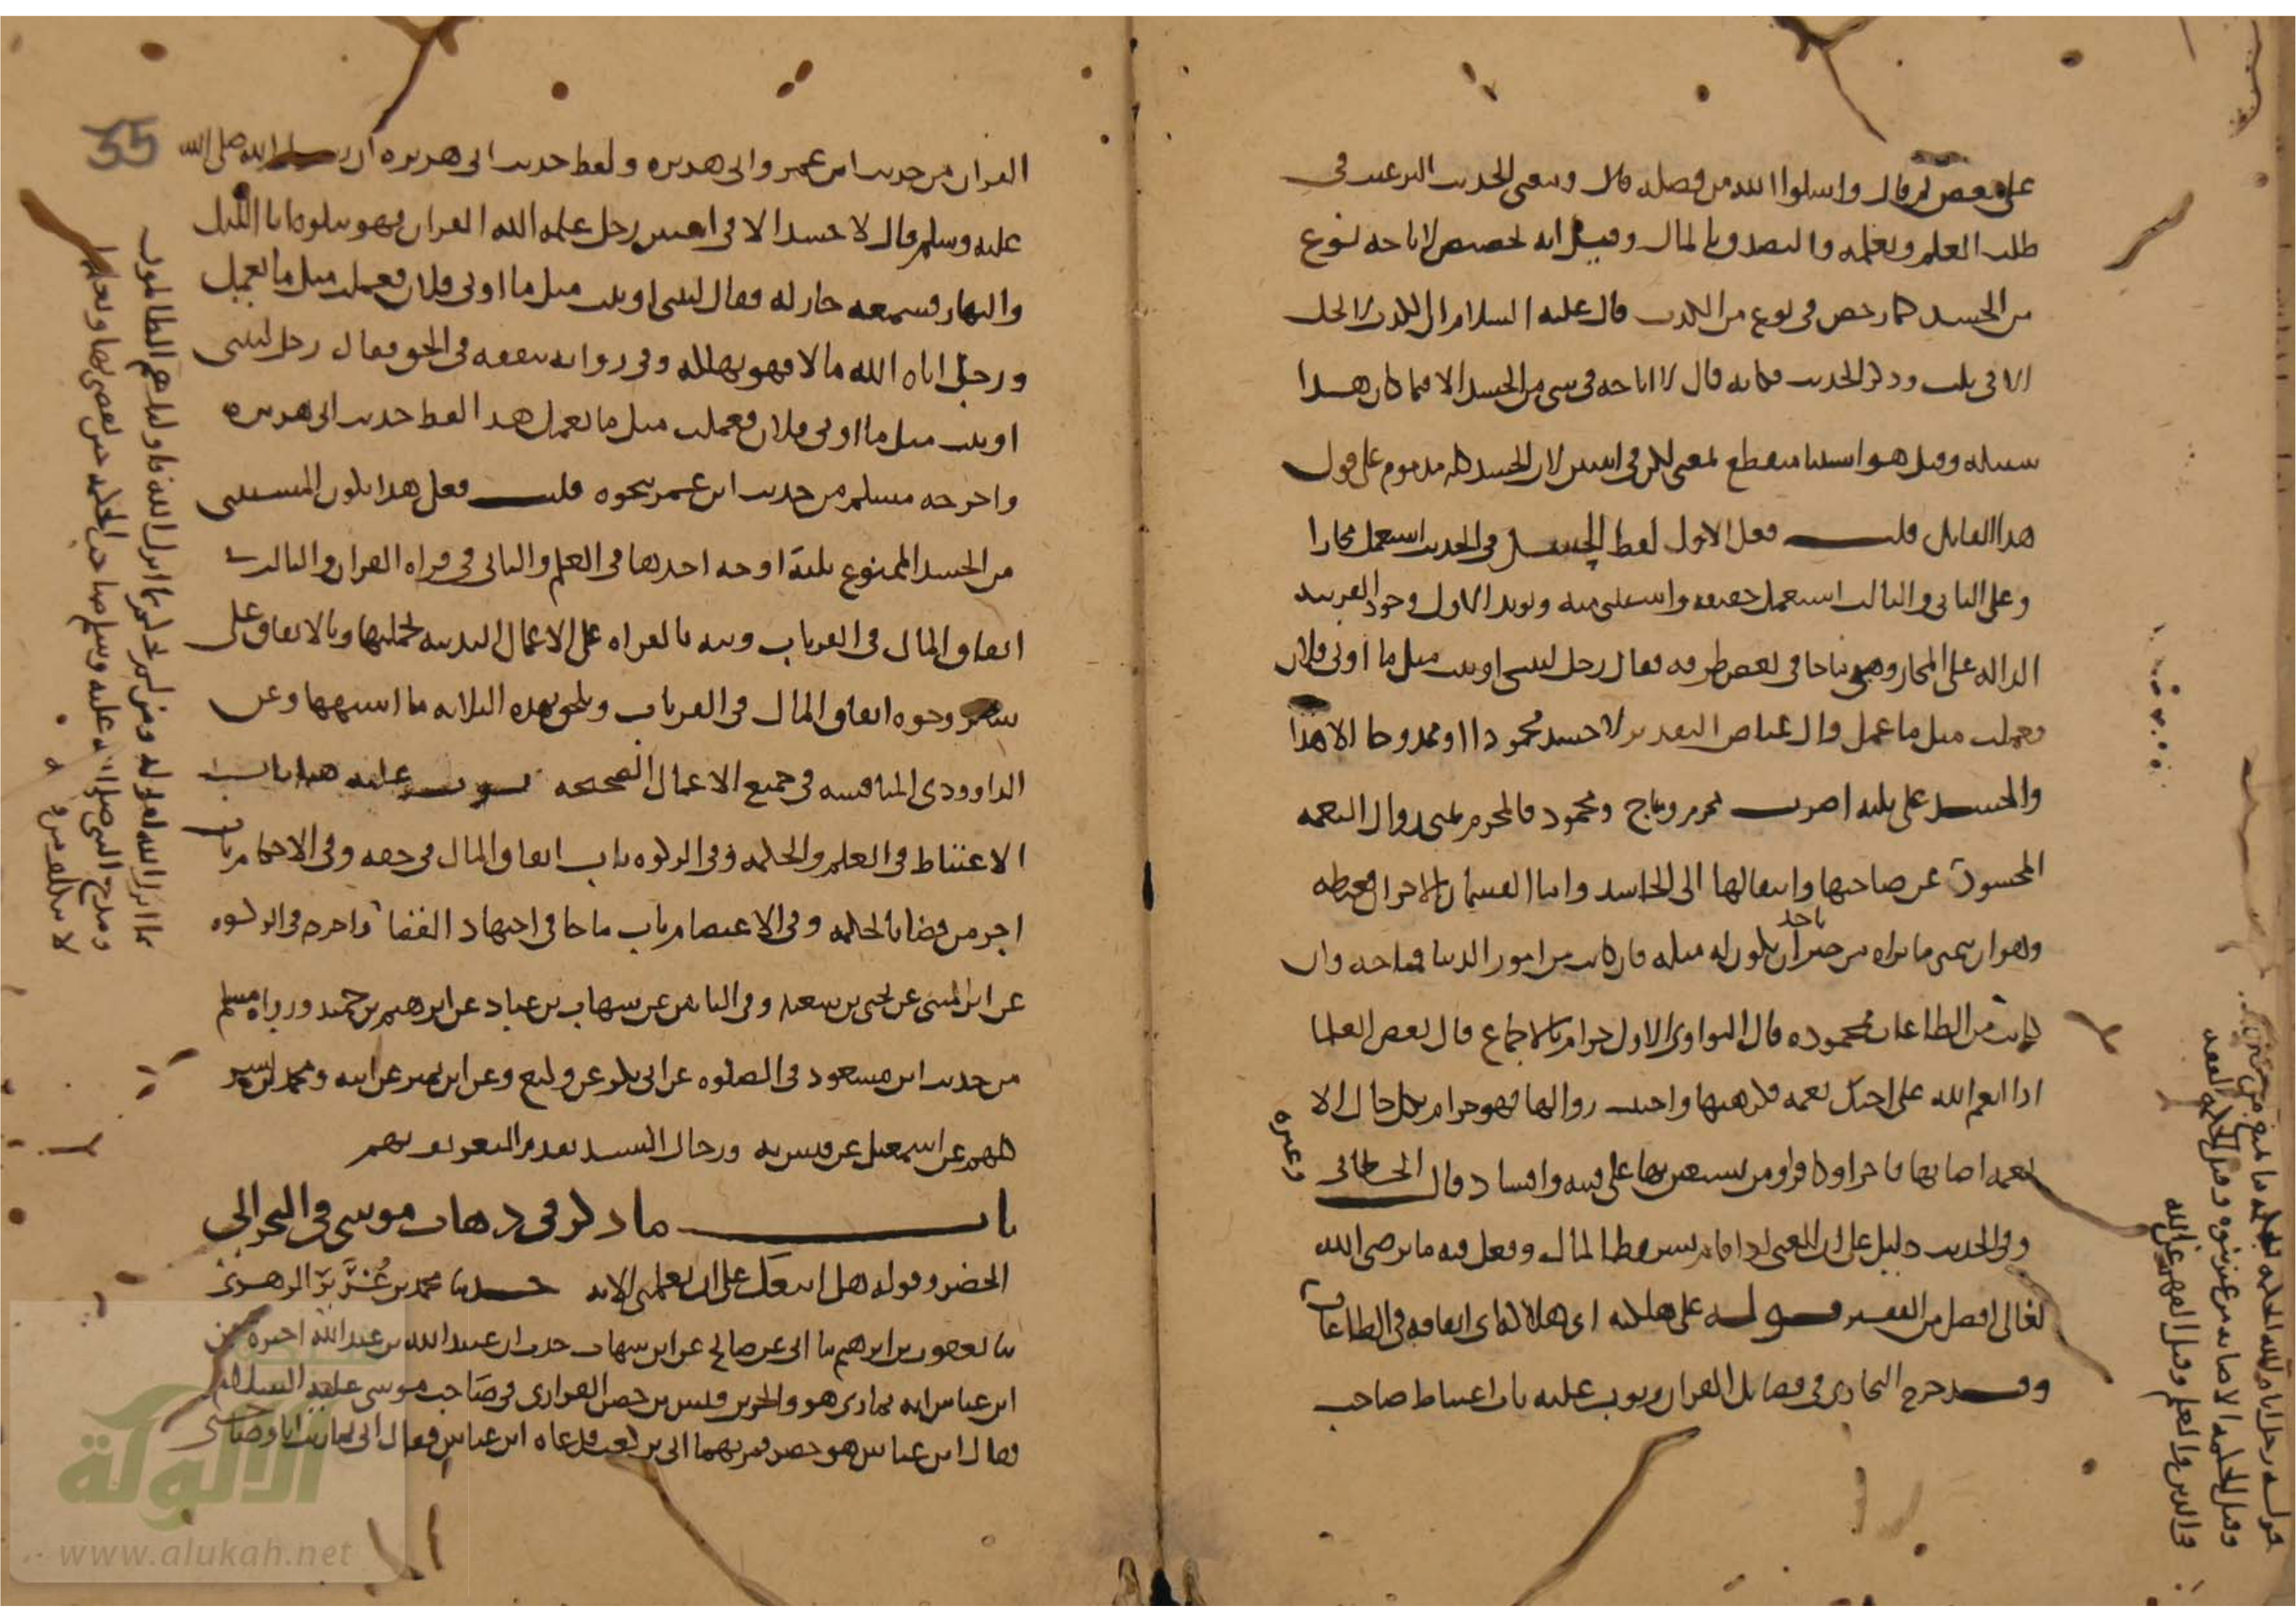 على بعض ثم قال واسلوا الله من فضله قال ومعنى الحديث الترغيب في
طلب العلم وتعلمه والتصدق بالمال وقيل انه تخصيص لاباحة نوع
من الحسد كما رخص في نوع من الكذب قال عليه السلام ان الكذب لا يحل
الا في ثلث وذكر الحديث فكانه قال لا اباحة في شي من الحسد الا فيما كان هذا
سبيله وقيل هو استثنا منقطع بمعنى لكن في اثنين لان الحسد كله مذموم على قول
هذا القايل قلت فعل الاول لفظ الحسد في الحديث استعمل مجازا
وعلى الثاني والثالث استعمل حقيقه واستثنى منه ويويد الاول وجود القرينه
الداله على المجاز وهي ما جا في بعض طرقه فقال رجل ليتني اوتيت مثل ما اوتي فلان
فعملت مثل ما عمل وال عياض التقدير لا حسد محمودا او ممدوحا الا هذا
والحسد على ثلثه اضرب محرم ومباح ومحمود فالمحرم تمنى زوال النعمه
المحسود عن صاحبها وانتقالها الى الحاسد واما القسمان الاخران فغبطه
وهو ان يتمنى ما يراه من خير باحد ان يكون له مثله فان كانت من امور الدنيا فمباحه وان
كانت من الطاعات فمحموده قال النواوي الاول حرام بالاجماع قال بعض العلما
اذا انعم الله على اخيك نعمه فكرهتها واحببت زوالها فهو حرام بكل حال الا
نعمه اصابها فاجر او كافر او من يستعين بها على فتنه وافساد قال الخطابي وغيره
وفي الحديث دليل على ان الغني اذا قام بشروط المال وفعل فيه ما يرضي الله
تعالى افضل من الفقير قوله على هلكته اي هلاكه اي انفاقه في الطاعات
وقد خرج البخاري في فضايل القران وبوب عليه باب اغتباط صاحب
قوله رجل اتاه الله الحكمه الحكمه ما منع من
وقيل الحكمه الاصابه من غير نبوه وقيل الحكمه الفقه
في الدين والعلم وقيل الفهم عن الله
القران من حديث ابن عمر وابي هريره ولفظ حديث ابي هريره ان رسول الله صلى الله
عليه وسلم قال لا حسد الا في اثنين رجل علمه الله القران فهو يتلوه انا الليل
والنهار فسمعه جار له فقال ليتني اوتيت مثل ما اوتي فلان فعملت مثل ما يعمل
ورجل اتاه الله مالا فهو يهلكه وفي روايه ينفقه في الحق فقال رجل ليتني
اوتيت مثل ما اوتي فلان فعملت مثل ما يعمل هذا لفظ حديث ابي هريره
واخرجه مسلم من حديث ابن عمر بنحوه قلت فعل هذا يكون المستثنى
من الحسد الممنوع ثلثة اوجه احدها في العلم والثاني في قراه القران والثالث
انفاق المال في القربات ونبه بالقراه على الاعمال البدنيه لجملتها وبالانفاق على
ساير وجوه انفاق المال في القربات ويلحق بهذه الثلاثه ما اشبهها وعن
الداوودي المنافسه في جميع الاعمال الصحيحه بوب عليه هنا باب
الاغتباط في العلم والحكمه وفي الزكوه باب انفاق المال في حقه وفي الاحكام باب
اجر من قضا بالحكمه وفي الاعتصام باب ما جا في اجتهاد القضا واخرجه في الزكوه
عن ابن المثنى عن يحيى بن سعيد وفي الباقين عن شهاب بن عباد عن ابرهيم بن حميد ورواه مسلم
من حديث ابن مسعود في الصلوه عن ابي بكر عن وكيع وعن ابن نمير عن ابيه ومحمد بن بشر
كلهم عن اسمعيل عن قيس به ورجال السند تقدم التعريف بهم
باب ما ذكر في ذهاب موسى في البحر الى
الخضر وقوله هل اتبعك على ان تعلمني الايه حدثنا محمد بن غرير الزهري
ثنا يعقوب بن ابرهيم ثنا ابي عن صالح عن ابن شهاب حدث ان عبيد الله بن عبد الله اخبره عن
ابن عباس انه تمارى هو والحر بن قيس بن حصن الفزاري في صاحب موسى عليه السلام
فقال ابن عباس هو خضر فمر بهما ابي بن كعب فدعاه ابن عباس فقال اني تماريت انا وصاحبي
بما انزل الله لقوله ومن لم يحكم بما انزل الله فاوليك هم الظالمون
ومدح النبي صلى الله عليه وسلم صاحب الحكمه حين يقضي بها ويعلمها
لا يتكلف من
35
الألوكة
www.alukah.net